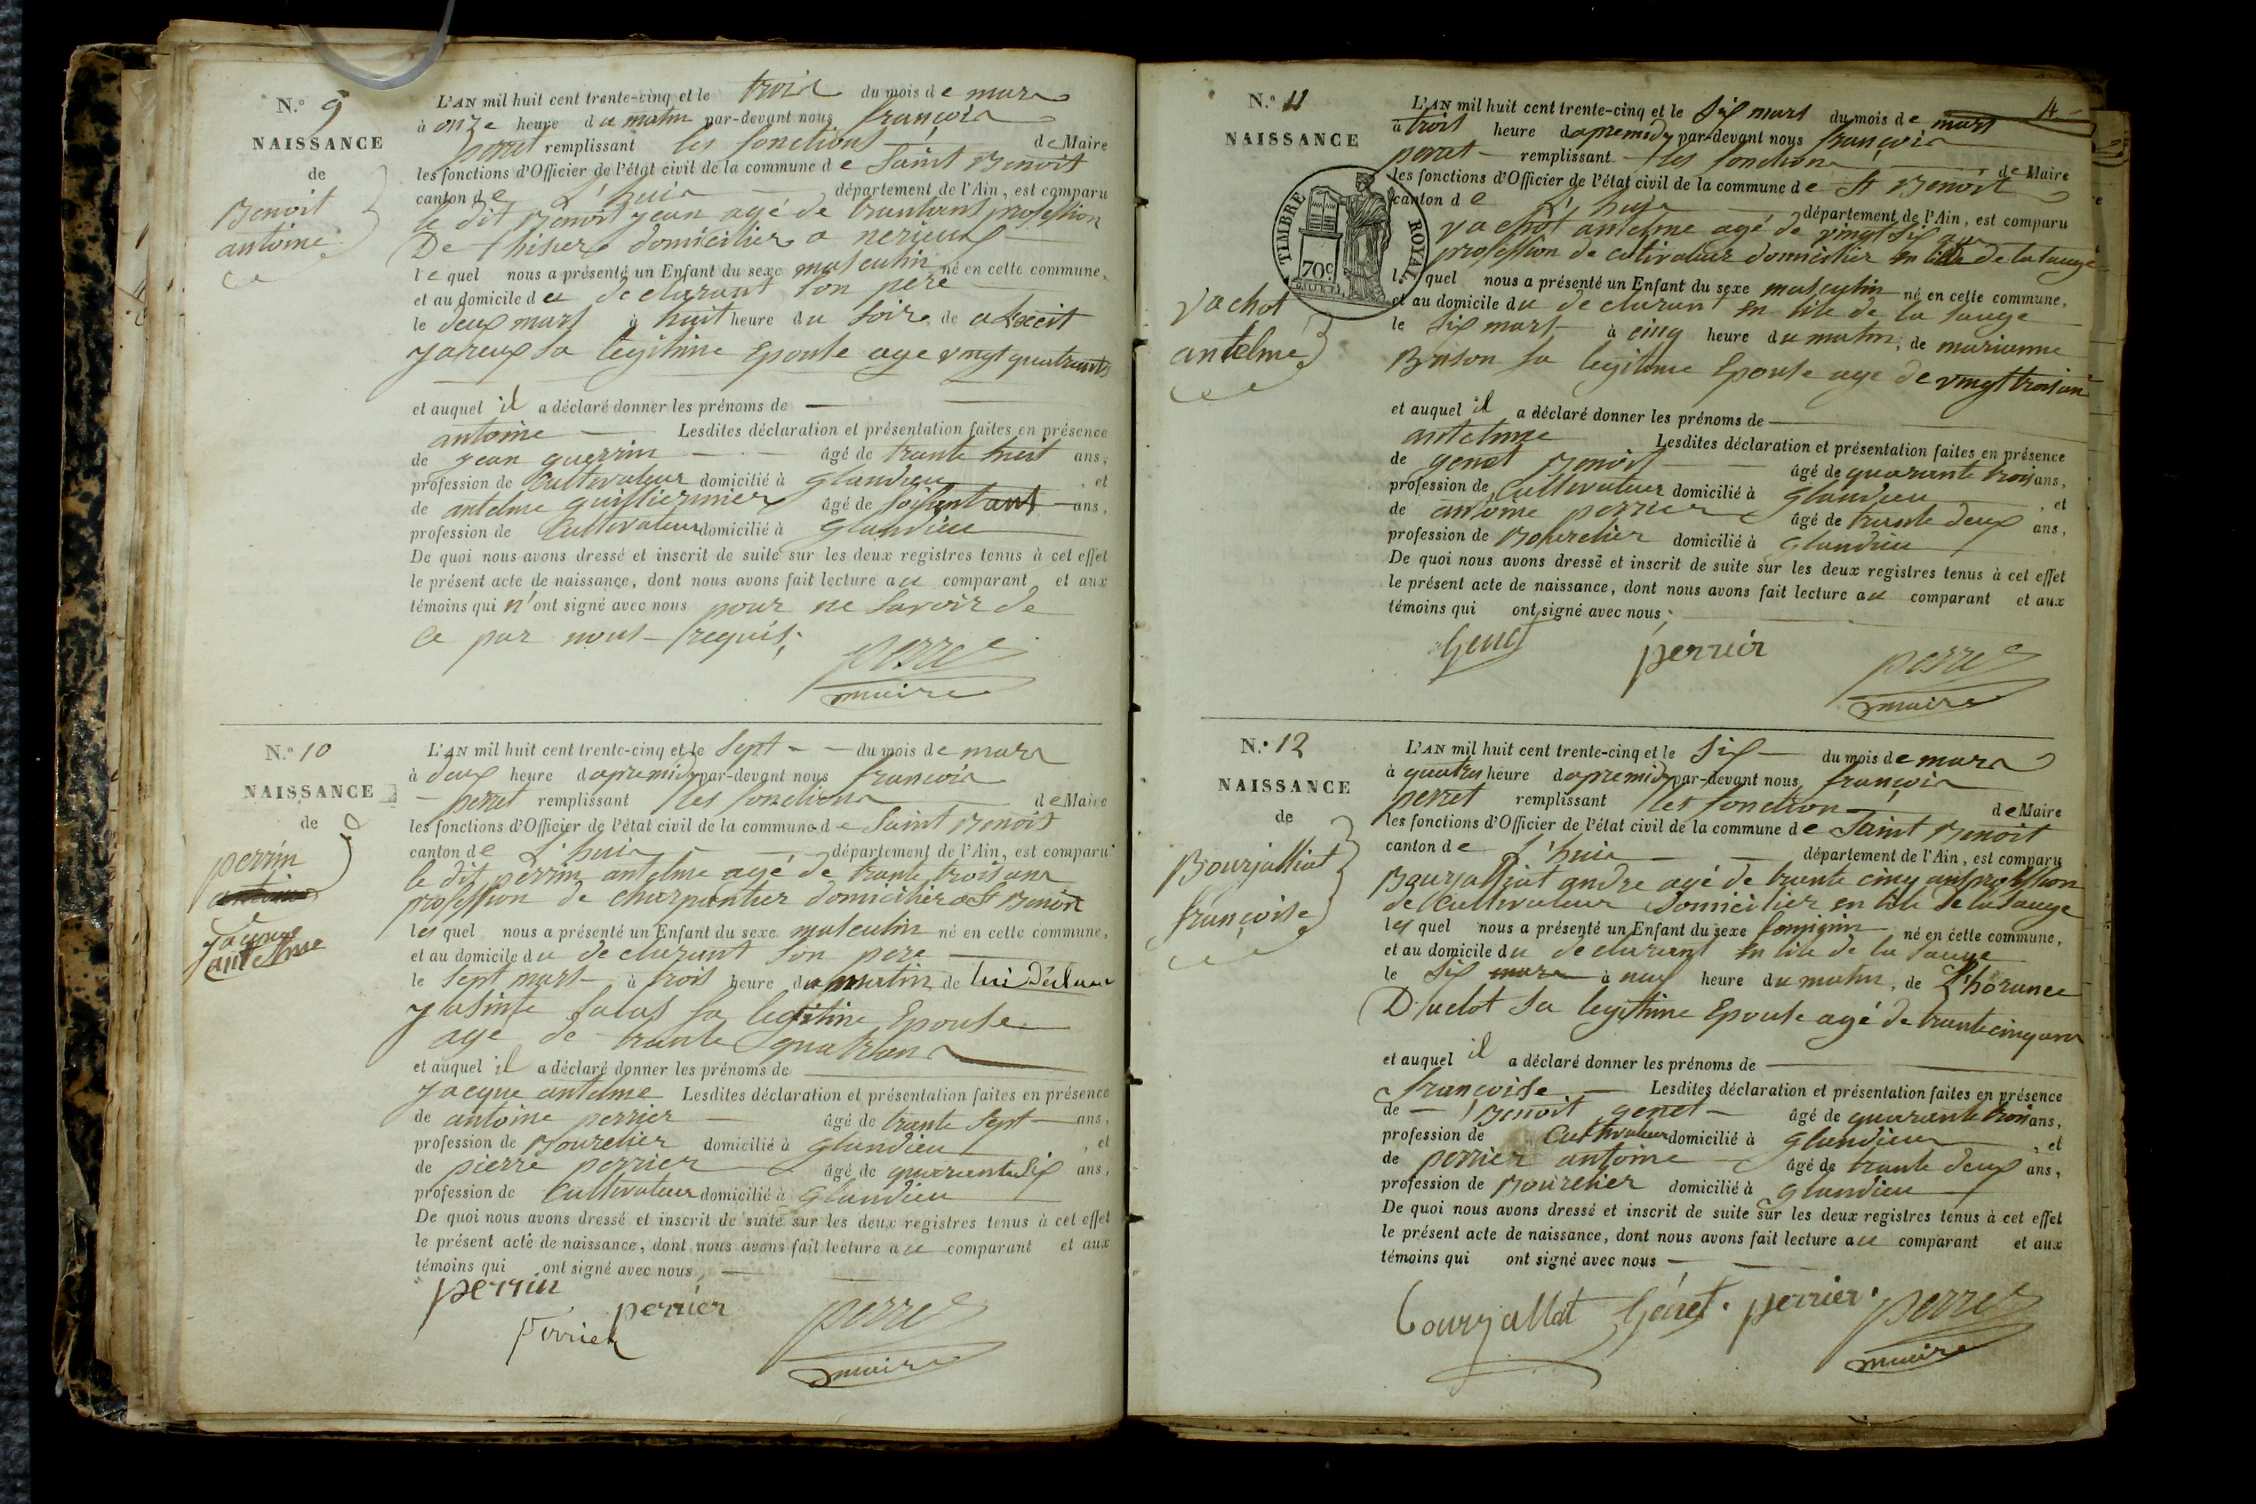 N.° 9
NAISSANCE
de
Benoit
antoine
L'AN mil huit cent trente-cinq et le trois du mois de mars
à onze heure du matin par-devant nous françois
perret remplissant les fonctions de Maire
les fonctions d'Officier de l'état civil de la commune de Saint Benoit
canton de L'huis département de l'Ain, est comparu
le dit Benoit jean agé de profession
De domicilier a
le quel nous a présenté un Enfant du sexe masculin né en cette commune,
et au domicile du declarant son pere
le deux mars à huit heure du soire de
sa legitime Epouse age vingt quatre ants
et auquel il a déclaré donner les prénoms de
antoine Lesdites déclaration et présentation faites en présence
de jean guerrin âgé de trante huit ans,
profession de Cultivateur domicilié à glandieu, et
de antelme âgé de ans,
profession de Cultivateur domicilié à glandieu
De quoi nous avons dressé et inscrit de suite sur les deux registres tenus à cet effet
le présent acte de naissance, dont nous avons fait lecture au comparant et aux
témoins qui n'ont signé avec nous pour ne savoir de
ce par nous requis;
perret
maire
N.° 10
NAISSANCE
de
perrin
jacque
antelme
L'AN mil huit cent trente-cinq et le sept du mois de mars
à deux heure dapremidy par-devant nous francois
perret remplissant les fonctions de Maire
les fonctions d'Officier de l'état civil de la commune de Saint Benoit
canton de L'huis département de l'Ain, est comparu
le dit perrin antelme agé de trante trois ans
profession de charpantier domicilier a St Benoit
les quel nous a présenté un Enfant du sexe masculin né en cette commune,
et au domicile du declarant son pere
le sept mars à trois heure du matin, de lui déclarant
sa legitime Epouse
age de trante quatre ans
et auquel il a déclaré donner les prénoms de
jacque antelme Lesdites déclaration et présentation faites en présence
de antoine perrier âgé de trante sept ans,
profession de Bourelier domicilié à glandieu, et
de pierre perrier âgé de quarante six ans,
profession de Cultivateur domicilié à glandieu
De quoi nous avons dressé et inscrit de suite sur les deux registres tenus à cet effet
le présent acte de naissance, dont nous avons fait lecture au comparant et aux
témoins qui ont signé avec nous
perrin
perrier
perrier
perret
maire
4
N.° 11
NAISSANCE
TIMBRE ROYAL
70c
vachot
antelme
L'AN mil huit cent trente-cinq et le six mars du mois de mars
à trois heure dapremidy par-devant nous françois
perret remplissant les fonctions de Maire
les fonctions d'Officier de l'état civil de la commune de St Benoit
canton de L'huis département de l'Ain, est comparu
vachot antelme agé de vingt six ans
profession de cultivateur domicilier en lile de la sauge
le quel nous a présenté un Enfant du sexe masculin né en cette commune,
et au domicile du declarant en lile de la sauge
le six mars à cinq heure du matin, de marianne
Brison sa legitime Epouse age de vingt trois ans
et auquel il a déclaré donner les prénoms de
antelme Lesdites déclaration et présentation faites en présence
de genet Benoit âgé de quarante trois ans,
profession de Cultivateur domicilié à glandieu, et
de antoine perrier âgé de trante deux ans,
profession de Bourrelier domicilié à glandieu
De quoi nous avons dressé et inscrit de suite sur les deux registres tenus à cet effet
le présent acte de naissance, dont nous avons fait lecture au comparant et aux
témoins qui ont signé avec nous;
Genet
perrier
perret
maire
N.° 12
NAISSANCE
de
Bourjalliat
françoise
L'AN mil huit cent trente-cinq et le six du mois de mars
à quatres heure dapremidy par-devant nous françois
perret remplissant les fonction de Maire
les fonctions d'Officier de l'état civil de la commune de Saint Benoit
canton de L'huis département de l'Ain, est comparu
Bourjalliat andre agé de trante cinq ans profession
de Cultivateur domicilier en lile de la sauge
les quel nous a présenté un Enfant du sexe feminin né en cette commune,
et au domicile du declarant en lile de la sauge
le six mars à neuf heure du matin, de
sa legittime Epouse agé de trante cinq ans
et auquel il a déclaré donner les prénoms de
françoise Lesdites déclaration et présentation faites en présence
de Benoit genet âgé de quarante trois ans,
profession de Cultivateur domicilié à glandieu, et
de perrier antoine âgé de trante deux ans,
profession de Bourelier domicilié à glandieu
De quoi nous avons dressé et inscrit de suite sur les deux registres tenus à cet effet
le présent acte de naissance, dont nous avons fait lecture au comparant et aux
témoins qui ont signé avec nous
bourjallat Genet. perrier. perret
maire